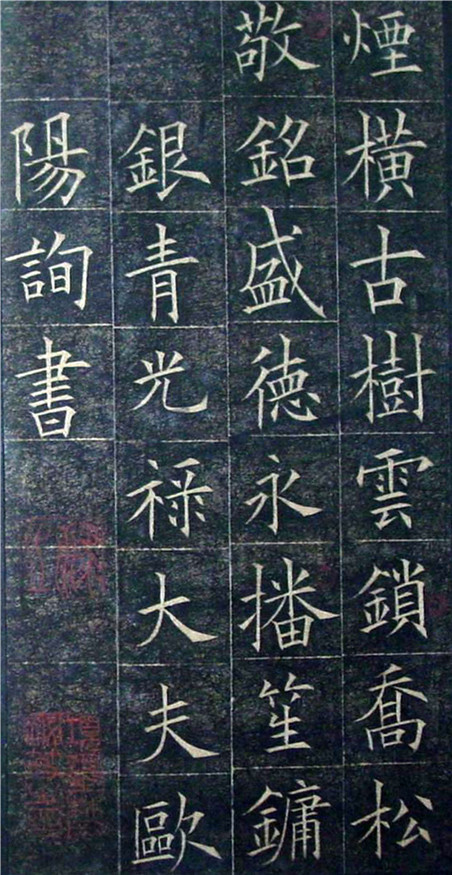 煙橫古樹雲鎖喬松
敬銘盛德永播笙鏞
銀青光祿大夫歐
陽詢書